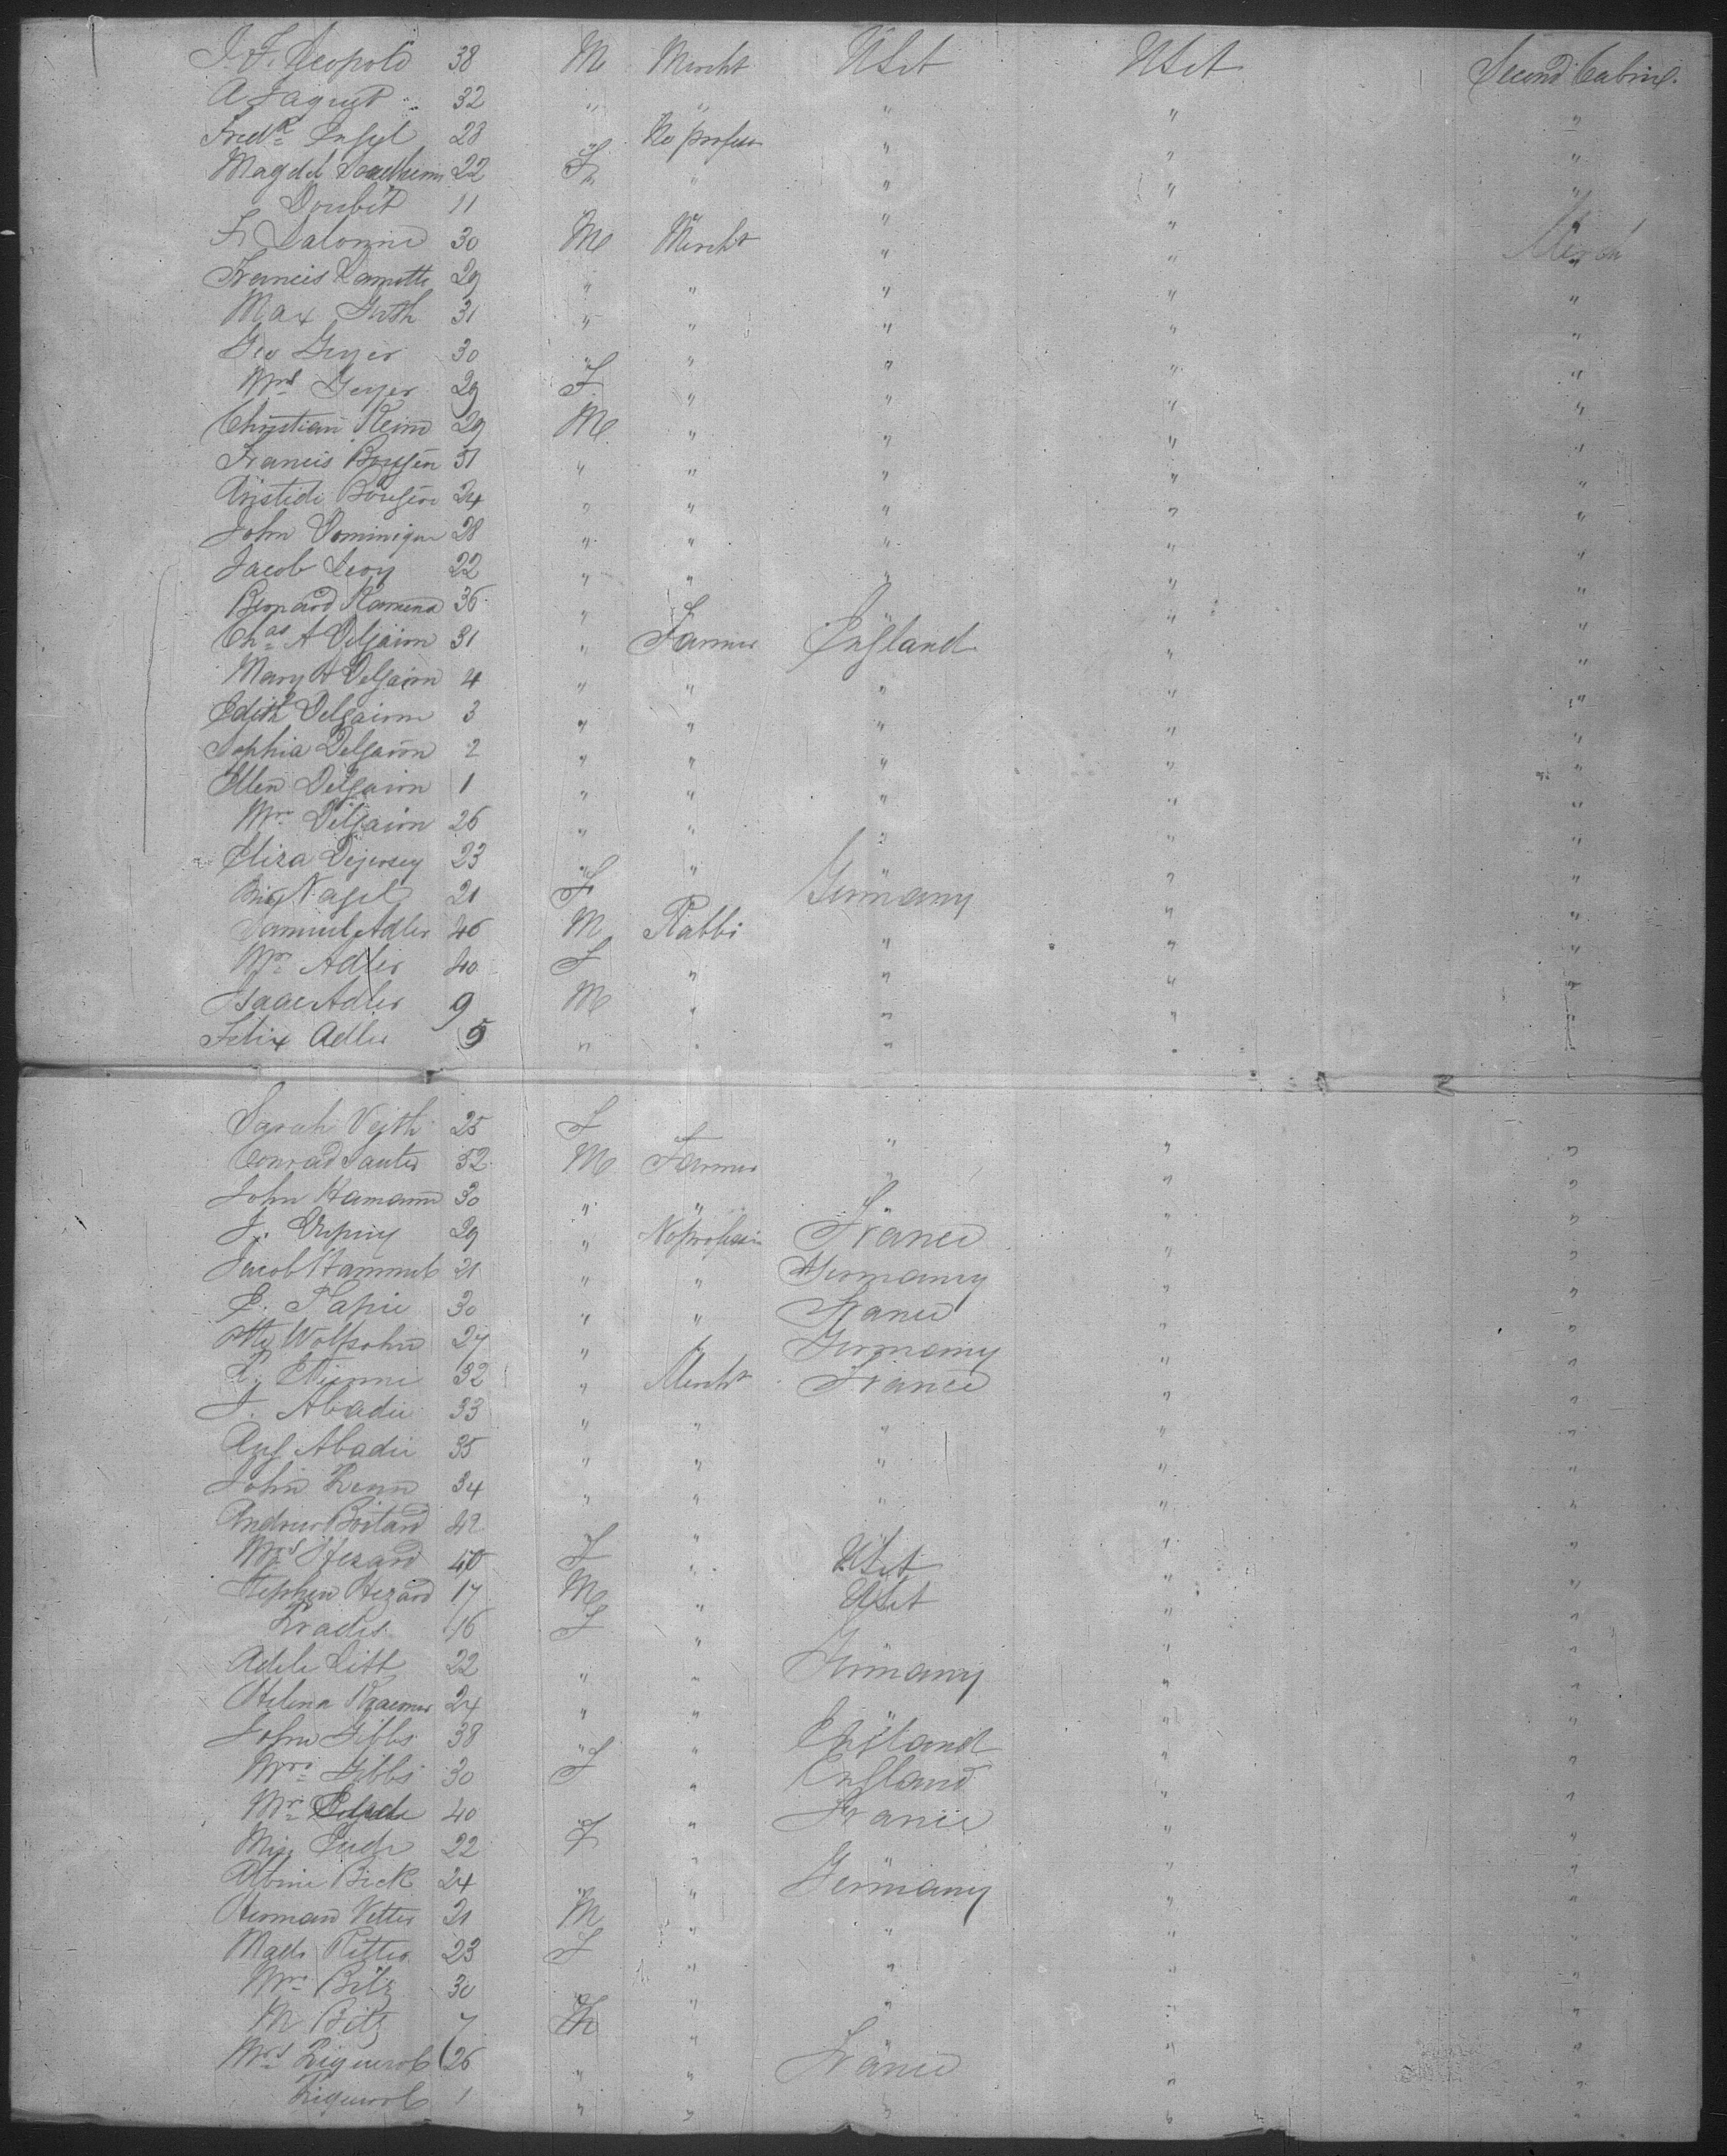 J. F. Leopold 38 M Mercht USt Second Cabin.
A Jaquet 32 " " " " "
Fredk Engel 23 " No profess " " "
Magdd 22 F " " " "
11 " " "
F. Salonne 30 M Mercht " " "
Francis 29 " " " " "
Max Guth 31 " " " " "
Geo Geyer 30 " " " " "
Mrs Geyer 29 F " " " "
Christian Keim 29 M " " " "
Francis Bougère 31 " " " " "
Aristide Bougère 24 " " " " "
John Dominique 28 " " " " "
Jacob Levy 22 " " " " "
Bernard 36 " " "
Chas A Delgairn 31 " Farmer England " "
Mary A Delgairn 4 " " " " "
Edith Delgairn 3 " " " " "
Sophia Delgairn 2 " " " " "
Ellen Delgairn 1 " " " " "
Mrs Delgairn 26 " " " " "
Eliza Dejersey 23 " " " " "
Miss Nagel 21 F Germany " "
Samuel Adler 46 M Rabbi " " "
Mrs Adler 40 F " " " "
Isaac Adler 9 M " " " "
Felix Adler 5 " " " " "
Sarah Veith 25 F " " "
Conrad Sauter 32 M Farmer " " "
John Hamann 30 " " " "
J. Dupuy 29 " No profession France " "
Jacob Hammel 21 " " Germany " "
P. Tapie 30 " " France " "
Wolfsohn 27 " Germany " "
P. Etienne 32 " Mercht France " "
J. Abadie 33 " " " " "
Aug Abadie 35 " " " " "
John Renn 34 " " " " "
Andrew Boitard 42 " " "
Mrs Hezard 40 F " USt " "
Stephen Hezard 17 M " USt " "
Pradis 16 F " " "
Adele Litt 22 " " Germany " "
Helena Kraemer 24 " " " "
John Gibbs 38 " " England " "
Mrs Gibbs 30 F " England " "
Mr 40 " France " "
Miss 22 F " " "
Albine Bick 24 " Germany " "
Herman Vetter 21 M " " " "
Mads Ritter 23 F " " " "
Mrs Bitz 30 " " " "
M Bitz 7 M " " "
Mrs Riguerol 26 " " France " "
Riguerol 1 " " " " "